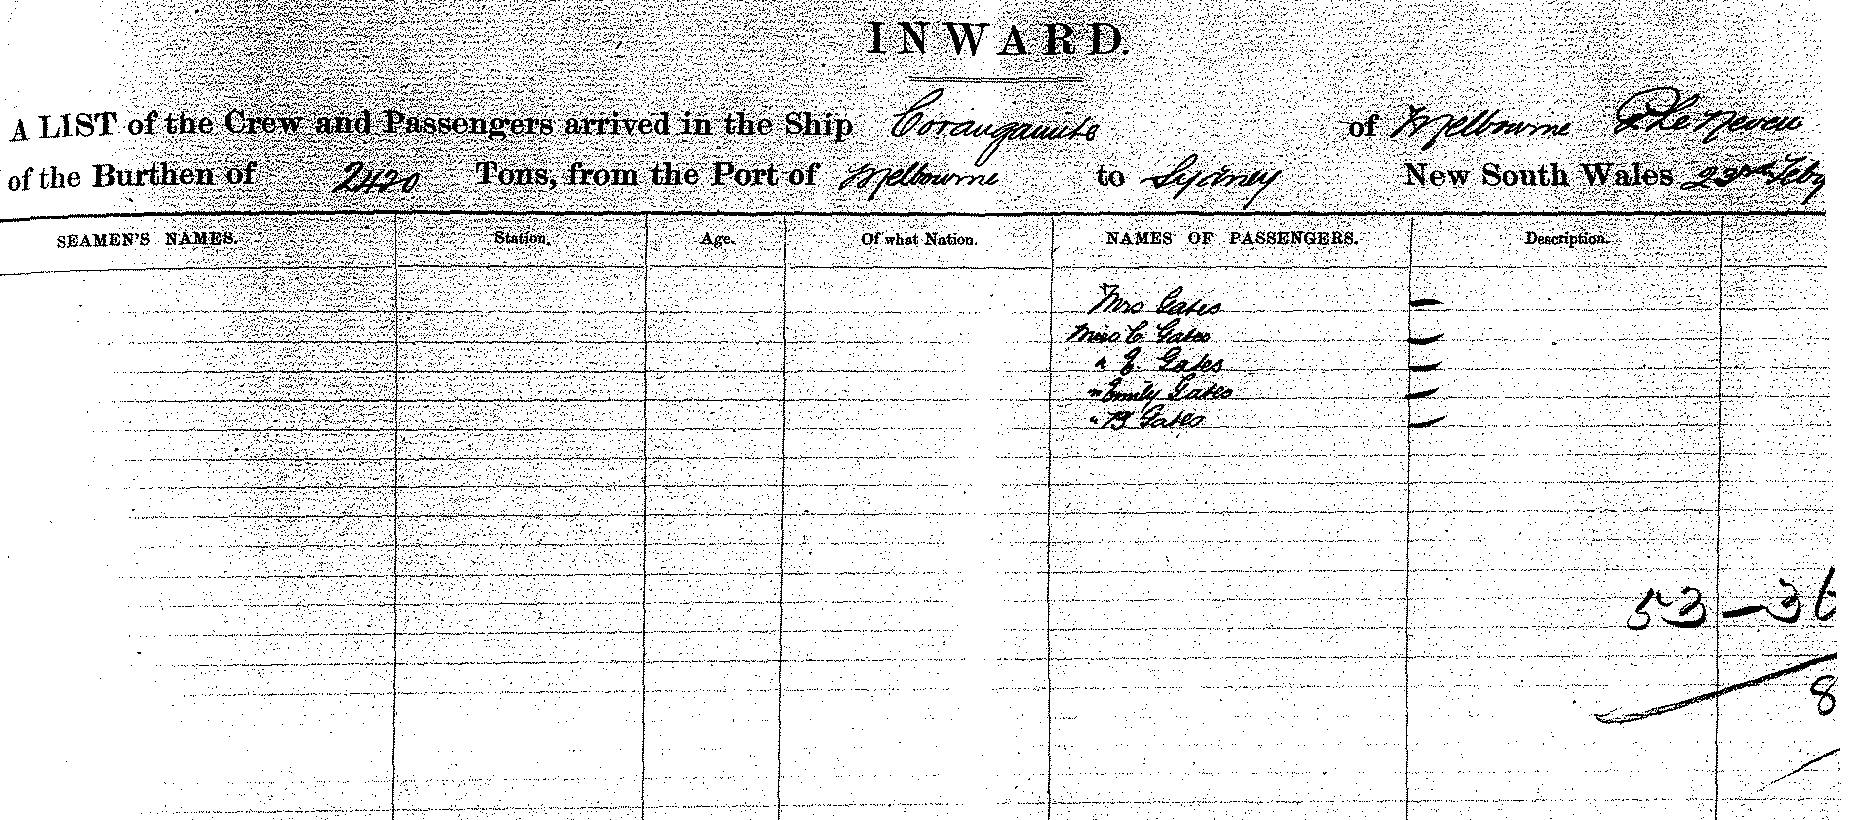 INWARD.
A LIST of the Crew and Passengers arrived in the Ship Corangamite of Melbourne
of the Burthen of 2420 Tons, from the Port of Melbourne to Sydney New South Wales 23rd Feby
SEAMEN'S NAMES. Station. Age. Of what Nation. NAMES OF PASSENGERS. Description.
Mrs Gates
Miss C Gates
" E. Gates
" Emily Gates
" B Gates
53 — 36
8